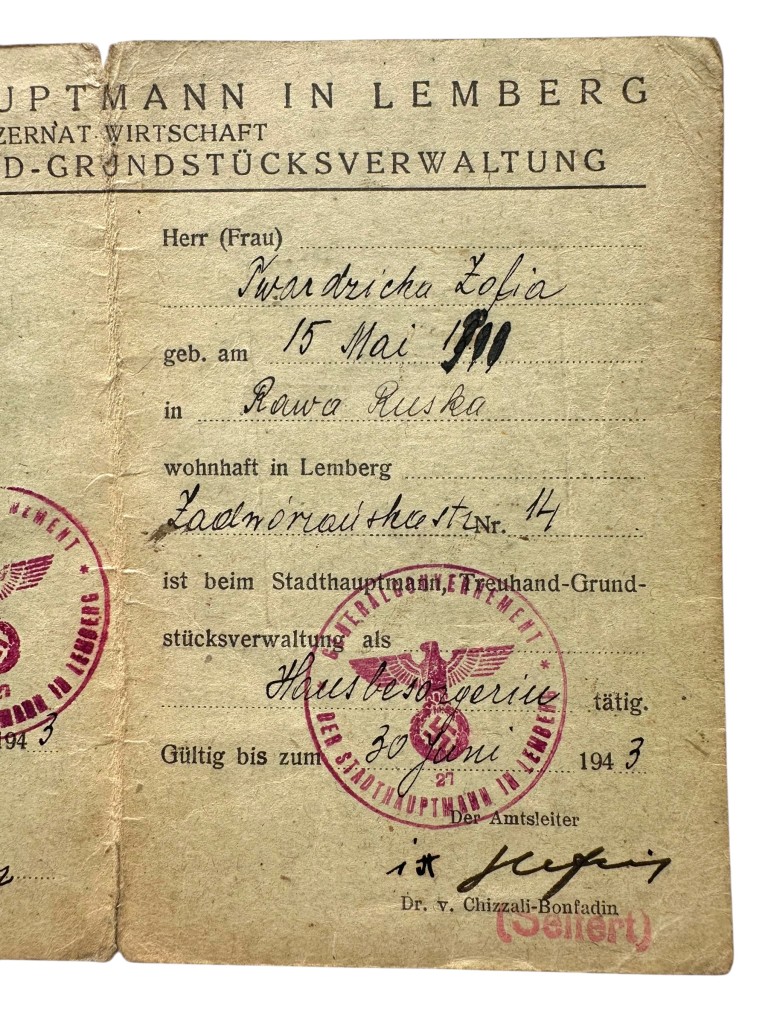 UPTMANN IN LEMBERG
ZERNAT WIRTSCHAFT
D-GRUNDSTÜCKSVERWALTUNG
Herr (Frau)
Twardzicka Zofia
geb. am 15 Mai
in Rawa Ruska
wohnhaft in Lemberg
Zadwórzańskastr Nr. 14
ist beim Stadthauptmann, Treuhand-Grund-
stücksverwaltung als
Hausbesorgerin tätig.
Gültig bis zum 30 Juni 1943
GENERALGOUVERNEMENT * DER STADTHAUPTMANN IN LEMBERG *
27
Der Amtsleiter
Dr. v. Chizzali-Bonfadin
(Seifert)
NEMENT *
PTMANN IN LEMBERG
27
1943